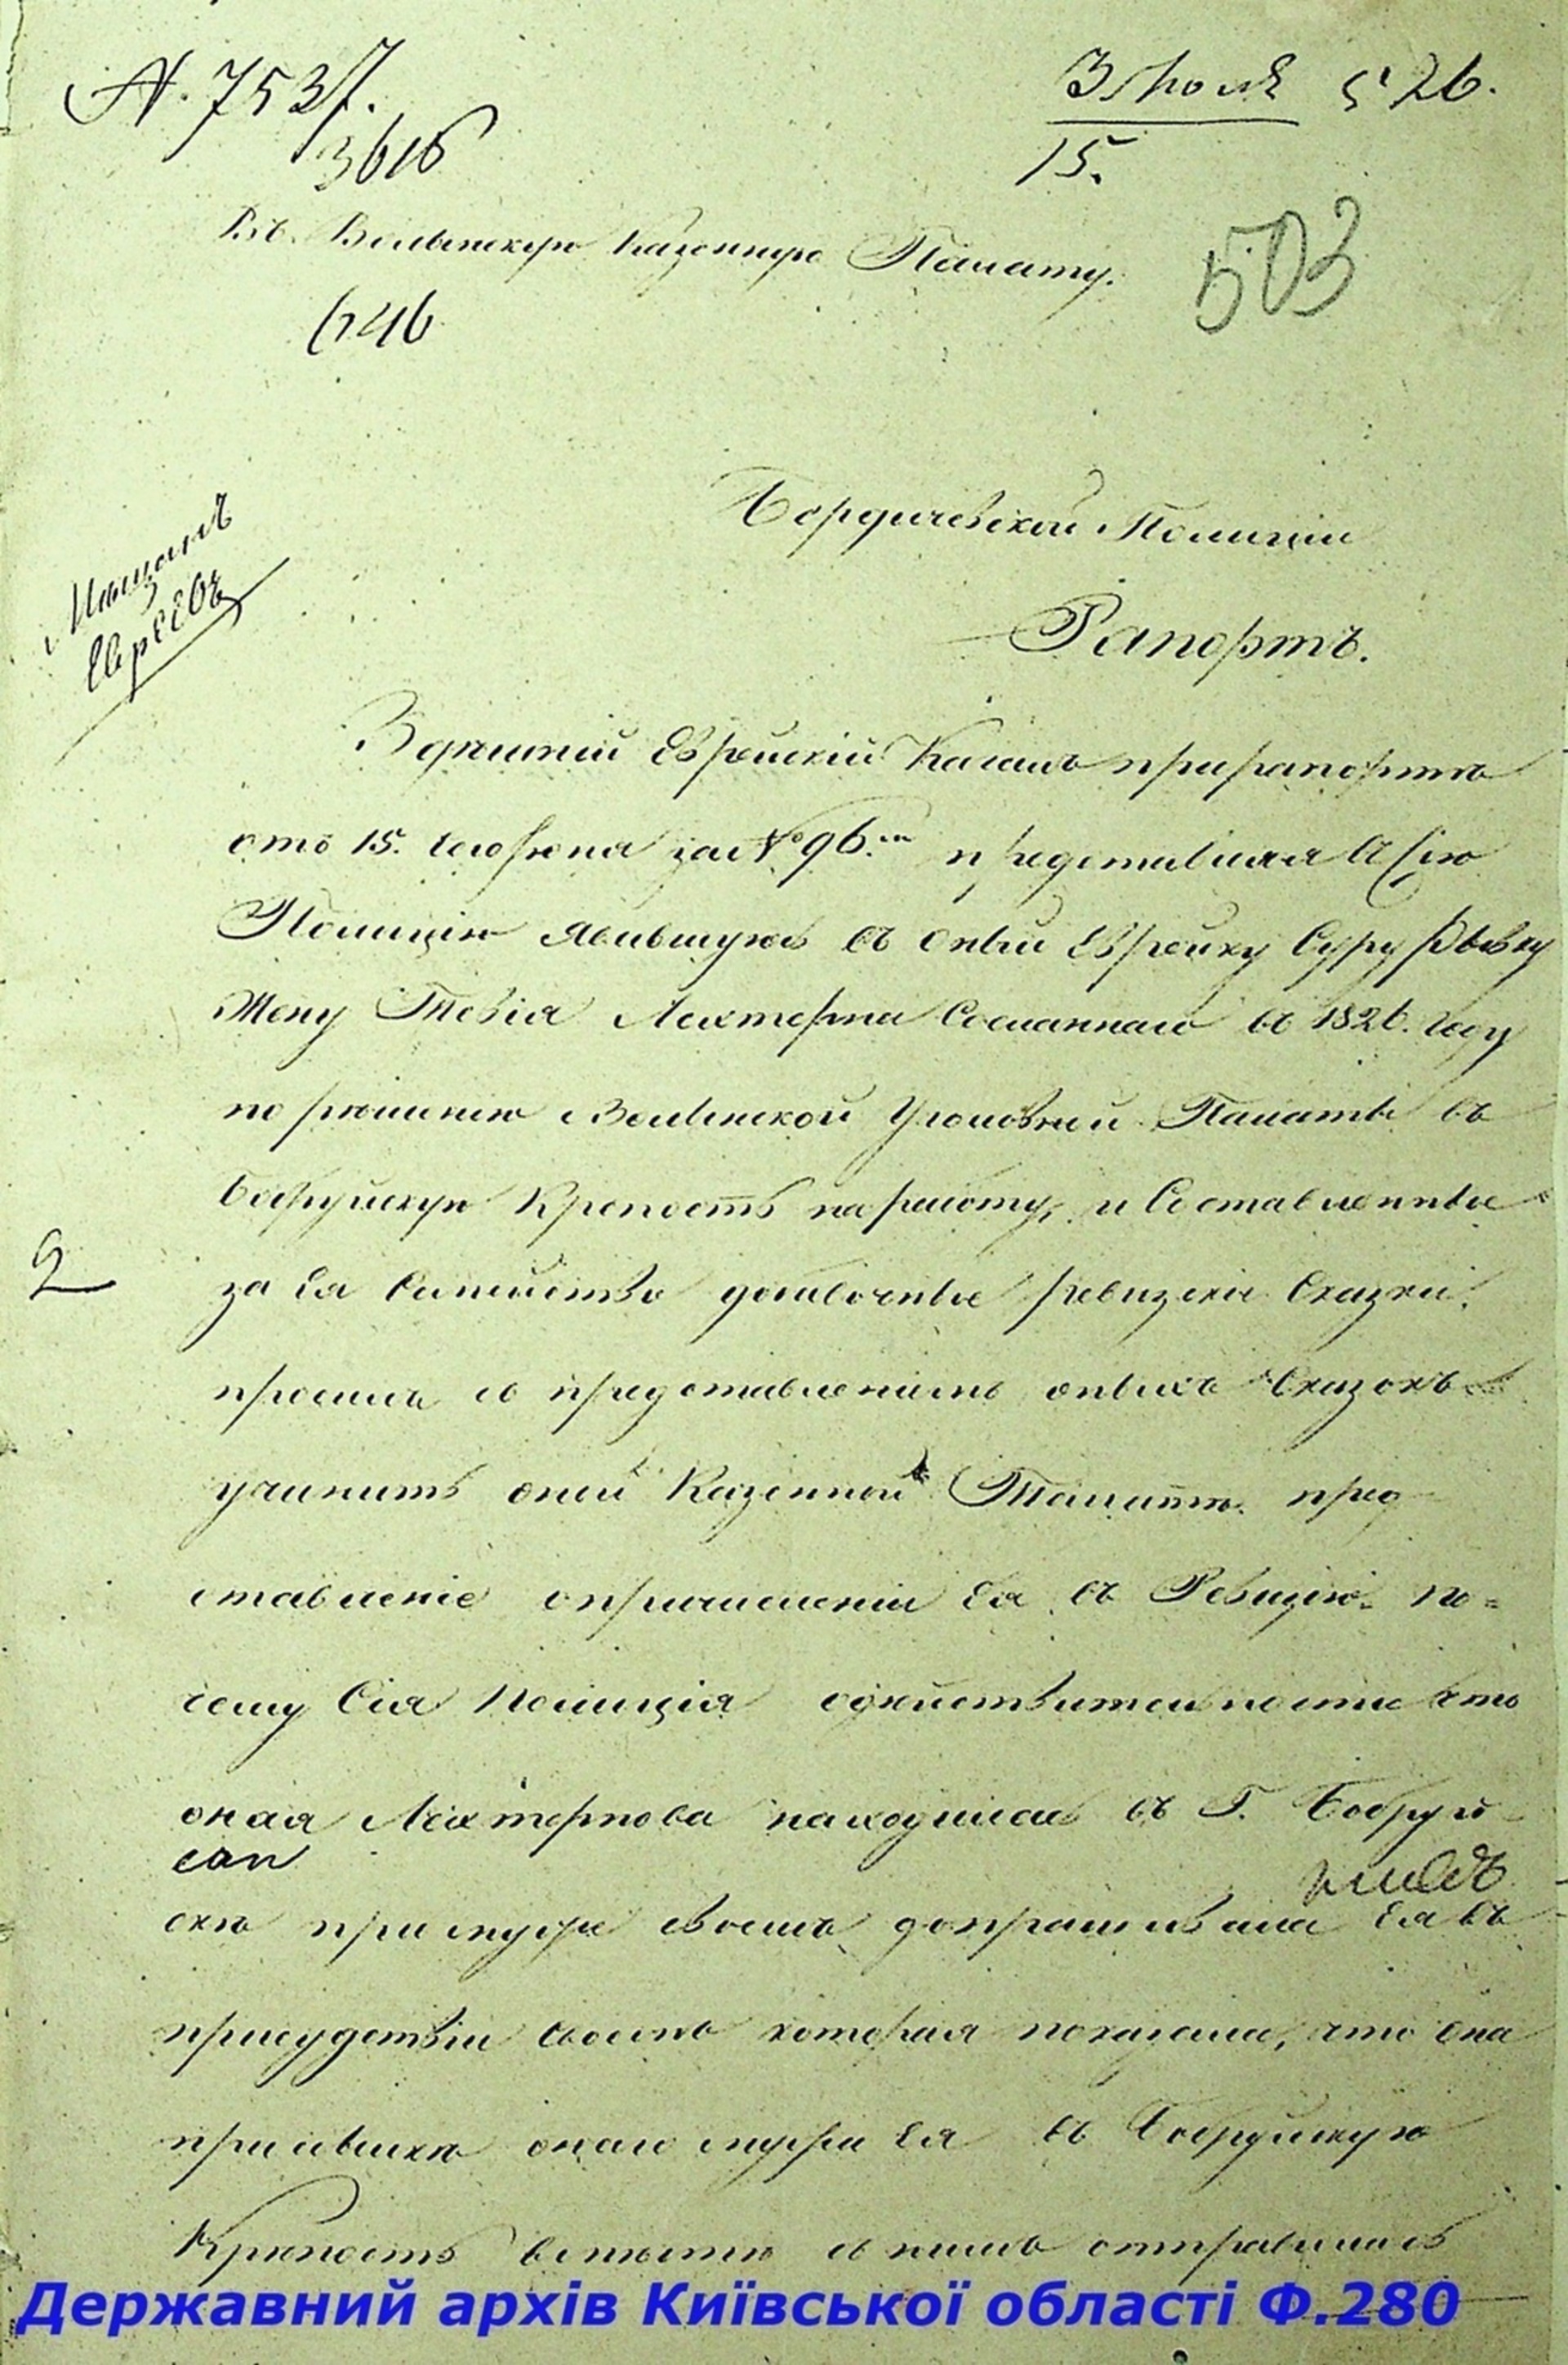 № 7537.
3616
3 Июля 826.
15.
Въ Волынскую Казенную Палату.
503
646
Бердичевской Полиции
Рапортъ.
Мещанъ
Евреевъ
Здешний Еврейский Кагалъ при рапорте
ото 15. сего Июня за № 96.м представляя в Сию
Полицию явившуюсь въ оный Еврейку Суру Ривку
Жену Тевія Лехтерна Сосланнаго въ 1826. году
по решению Волынской Уголовной Палаты въ
Бобруйскую Крепость на работу, и Составленные
за Ея Симейство добавочные ревизские Сказки.
просилъ со представлениемъ оныхъ Сказокъ
учинить оной Казенной Палате. пред
ставленіе о причисленіи Ея въ Ревизию. по=
2
чему Сія Полиція о действительности что
оная Лехтернова находилась въ Г. Бобруй
ске при муже своемъ допрашивала Ея въ
присудствіи своемъ которая показала, что Она
при ссылке онаго мужа Ея въ Бобруйскую
Крепость вместе со нимъ отправилась
Державний архів Київської області Ф.280